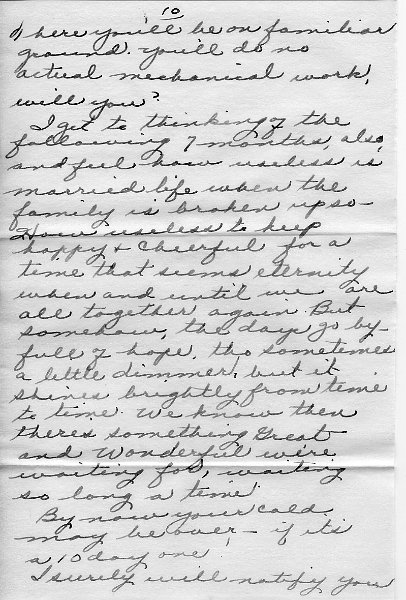 10
there you'll be on familiar
ground. You'll do no
actual mechanical work,
will you?
I get to thinking of the
following 7 months, also,
and feel how useless is
married life when the
family is broken up so-
How useless to keep
happy & cheerful for a
time that seems eternity
when and until we are
all together again. But
somehow, the days go by-
full of hope, tho sometimes
a little dimmer, but it
shines brightly from time
to time. We know then
theres something Great
and Wonderful we're
waiting for, waiting
so long a time.
By now your cold
may be over - if it's
a 10 day one.
I surely will notify you